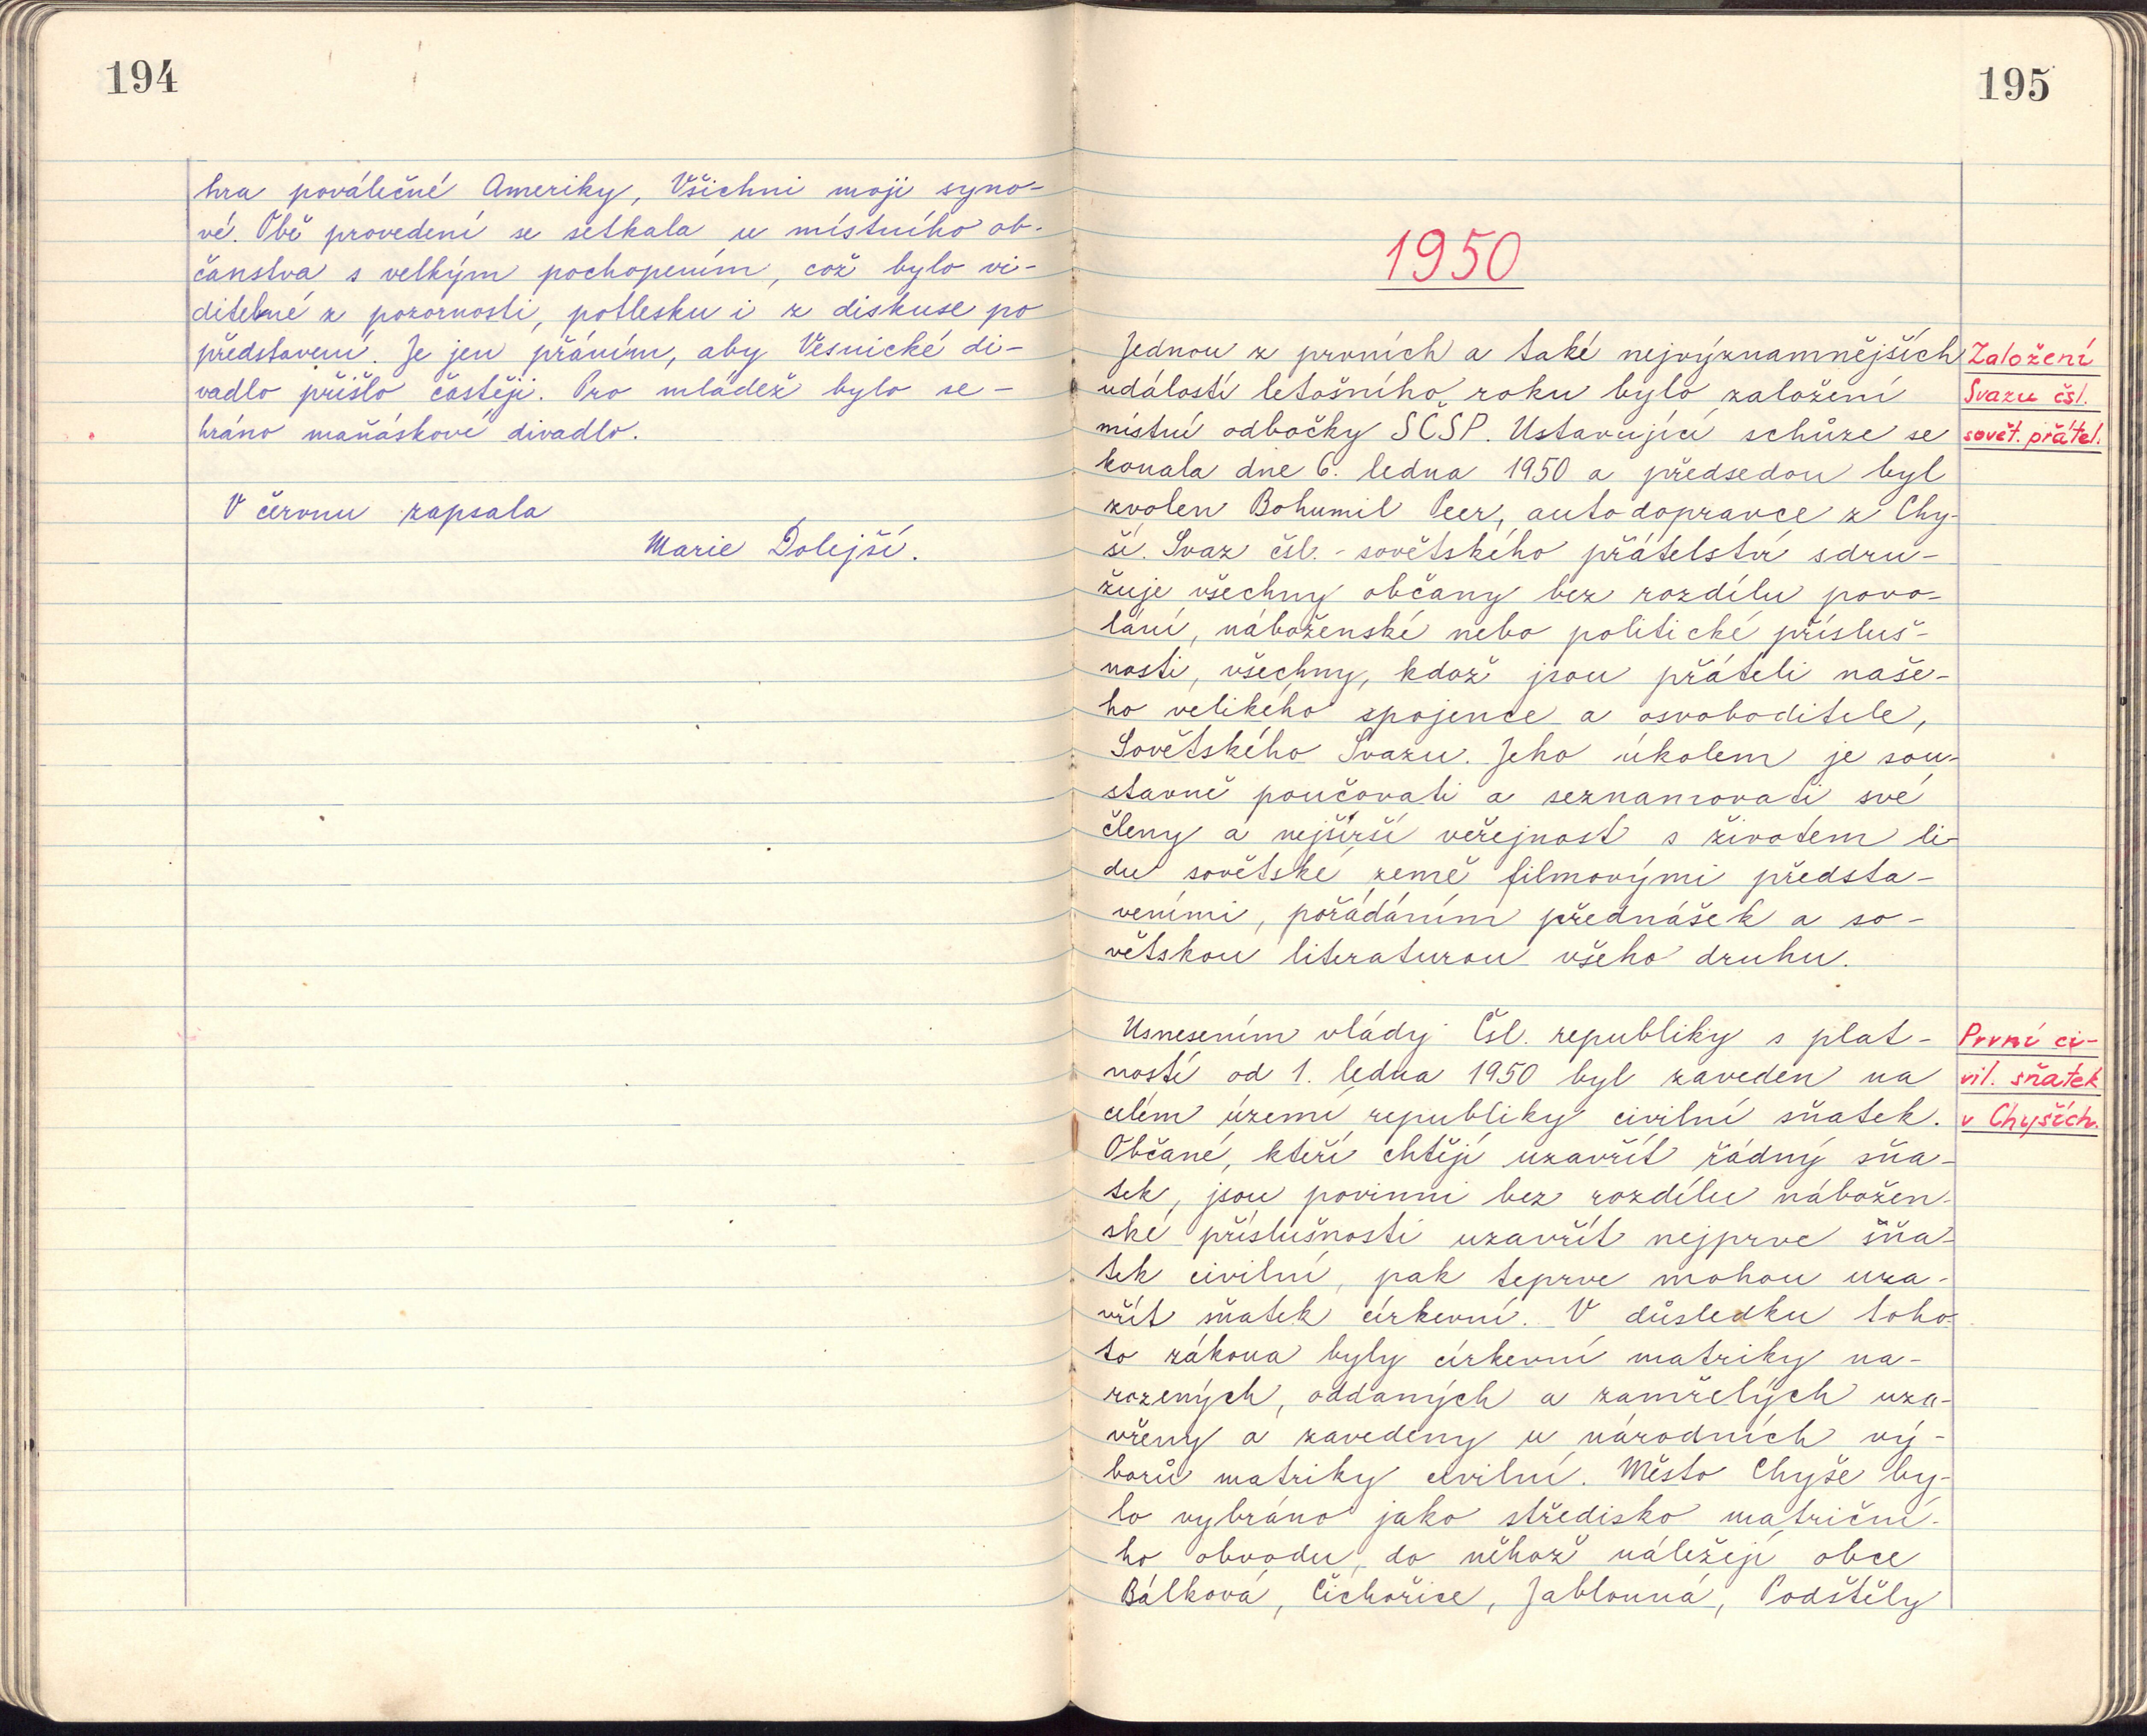 194
hra poválečné Ameriky, Všichni moji syno-
vé. Obě provedení se setkala u místního ob-
čanstva s velkým pochopením, což bylo vi-
ditelné z pozornosti, potlesku i z diskuse po
představení. Je jen přáním, aby Vesnické di-
vadlo přišlo častěji. Pro mládež bylo se-
hráno maňáskové divadlo.
V červnu zapsala
Marie Dolejší.
195
1950
Jednou z prvních a také nejvýznamnějších
událostí letošního roku bylo založení
místní odbočky SČSP. Ustavující schůze se
konala dne 6. ledna 1950 a předsedou byl
zvolen Bohumil Peer, autodopravce z Chy-
ší. Svaz čsl. - sovětského přátelství sdru-
žuje všechny občany bez rozdílu povo-
lání, náboženské nebo politické přísluš-
nosti, všechny, kdož jsou přáteli naše-
ho velikého spojence a osvoboditele,
Sovětského Svazu. Jeho úkolem je sou-
stavně poučovati a seznamovati své
členy a nejširší veřejnost s životem li-
du sovětské země filmovými předsta-
veními, pořádáním přednášek a so-
větskou literaturou všeho druhu.
Usnesením vlády Čsl. republiky s plat-
ností od 1. ledna 1950 byl zaveden na
celém území republiky civilní sňatek.
Občané, kteří chtějí uzavřít řádný sňa-
tek, jsou povinni bez rozdílu nábožen-
ské příslušnosti uzavřít nejprve sňa-
tek civilní, pak teprve mohou uza-
vřít sňatek církevní. V důsledku toho-
to zákona byly církevní matriky na-
rozených, oddaných a zamřelých uza-
vřeny a zavedeny u národních vý-
borů matriky civilní. Město Chyše by-
lo vybráno jako středisko matriční-
ho obvodu, do něhož náležejí obce
Bálková, Číchořice, Jablonná, Podštěly
Založení
Svazu čsl.
sovět. přátel.
První ci-
vil. sňatek
v Chyších.